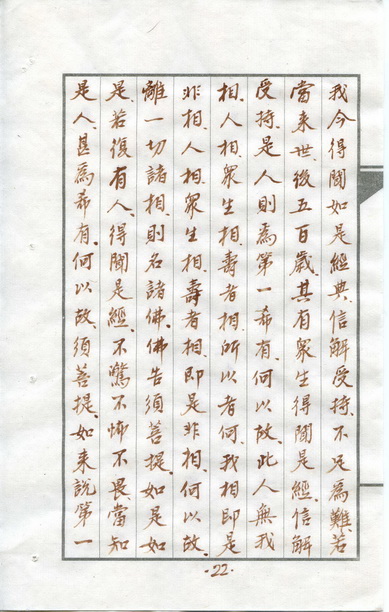 我今得聞如是經典、信解受持、不足為難、若
當来世、後五百歲、其有眾生得聞是經、信解
受持、是人則為第一希有、何以故、此人無我
相、人相、眾生相、壽者相、所以者何、我相即是
非相、人相、眾生相、壽者相、即是非相、何以故、
離一切諸相、則名諸佛、佛告須菩提、如是如
是、若復有人、得聞是經、不驚不怖不畏、當知
是人、甚為希有、何以故、須菩提、如来說第一
·22·